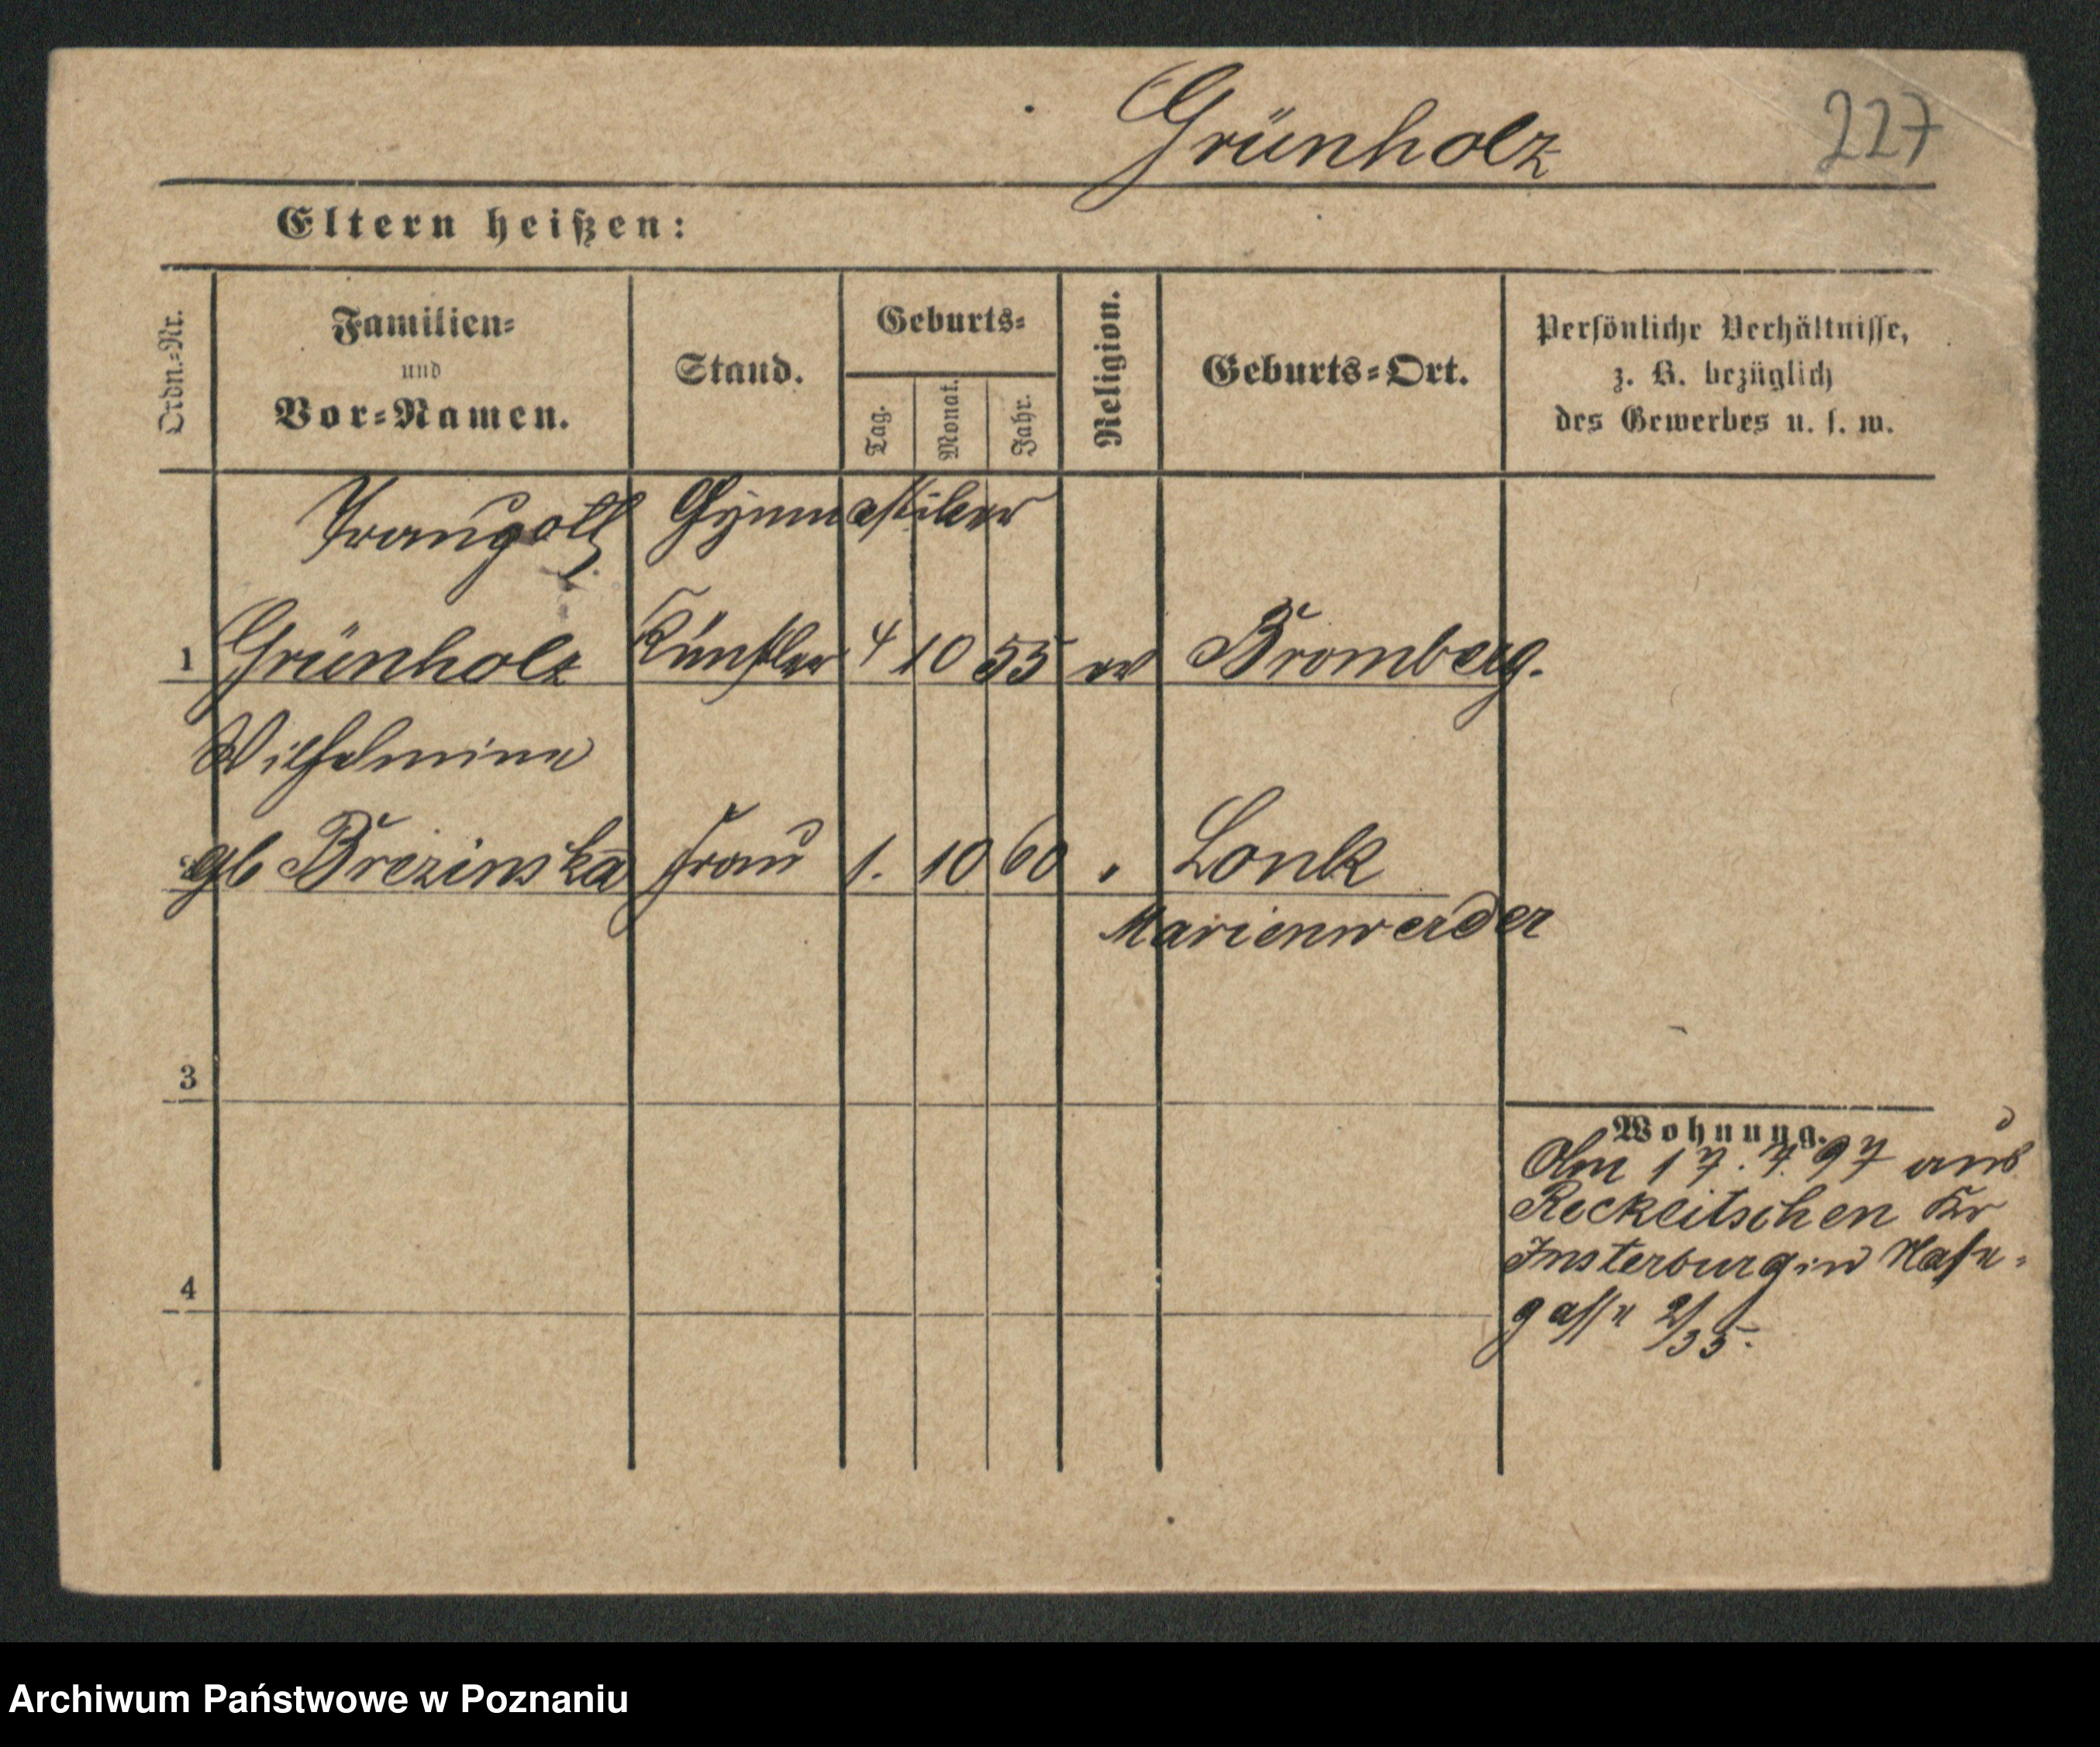 Grünholz
227
Eltern heißen:
Ordn.=Nr.
Familien=
und
Vor=Namen.
Stand.
Geburts=
Tag.
Monat.
Jahr.
Religion.
Geburts=Ort.
Persönliche Verhältnisse,
z. B. bezüglich
des Gewerbes u. s. w.
Traugott Gymnastiker
1 Grünholz Künstler 4 10 55 ev Bromberg.
Wilhelmine
gb Brezinska Frau 1. 10 60 " Lonk
Marienwerder
3
4
Wohnung.
Am 17.7.97 aus
Reckeitschen Kr
Insterburg in
gasse 2/35.
Archiwum Państwowe w Poznaniu